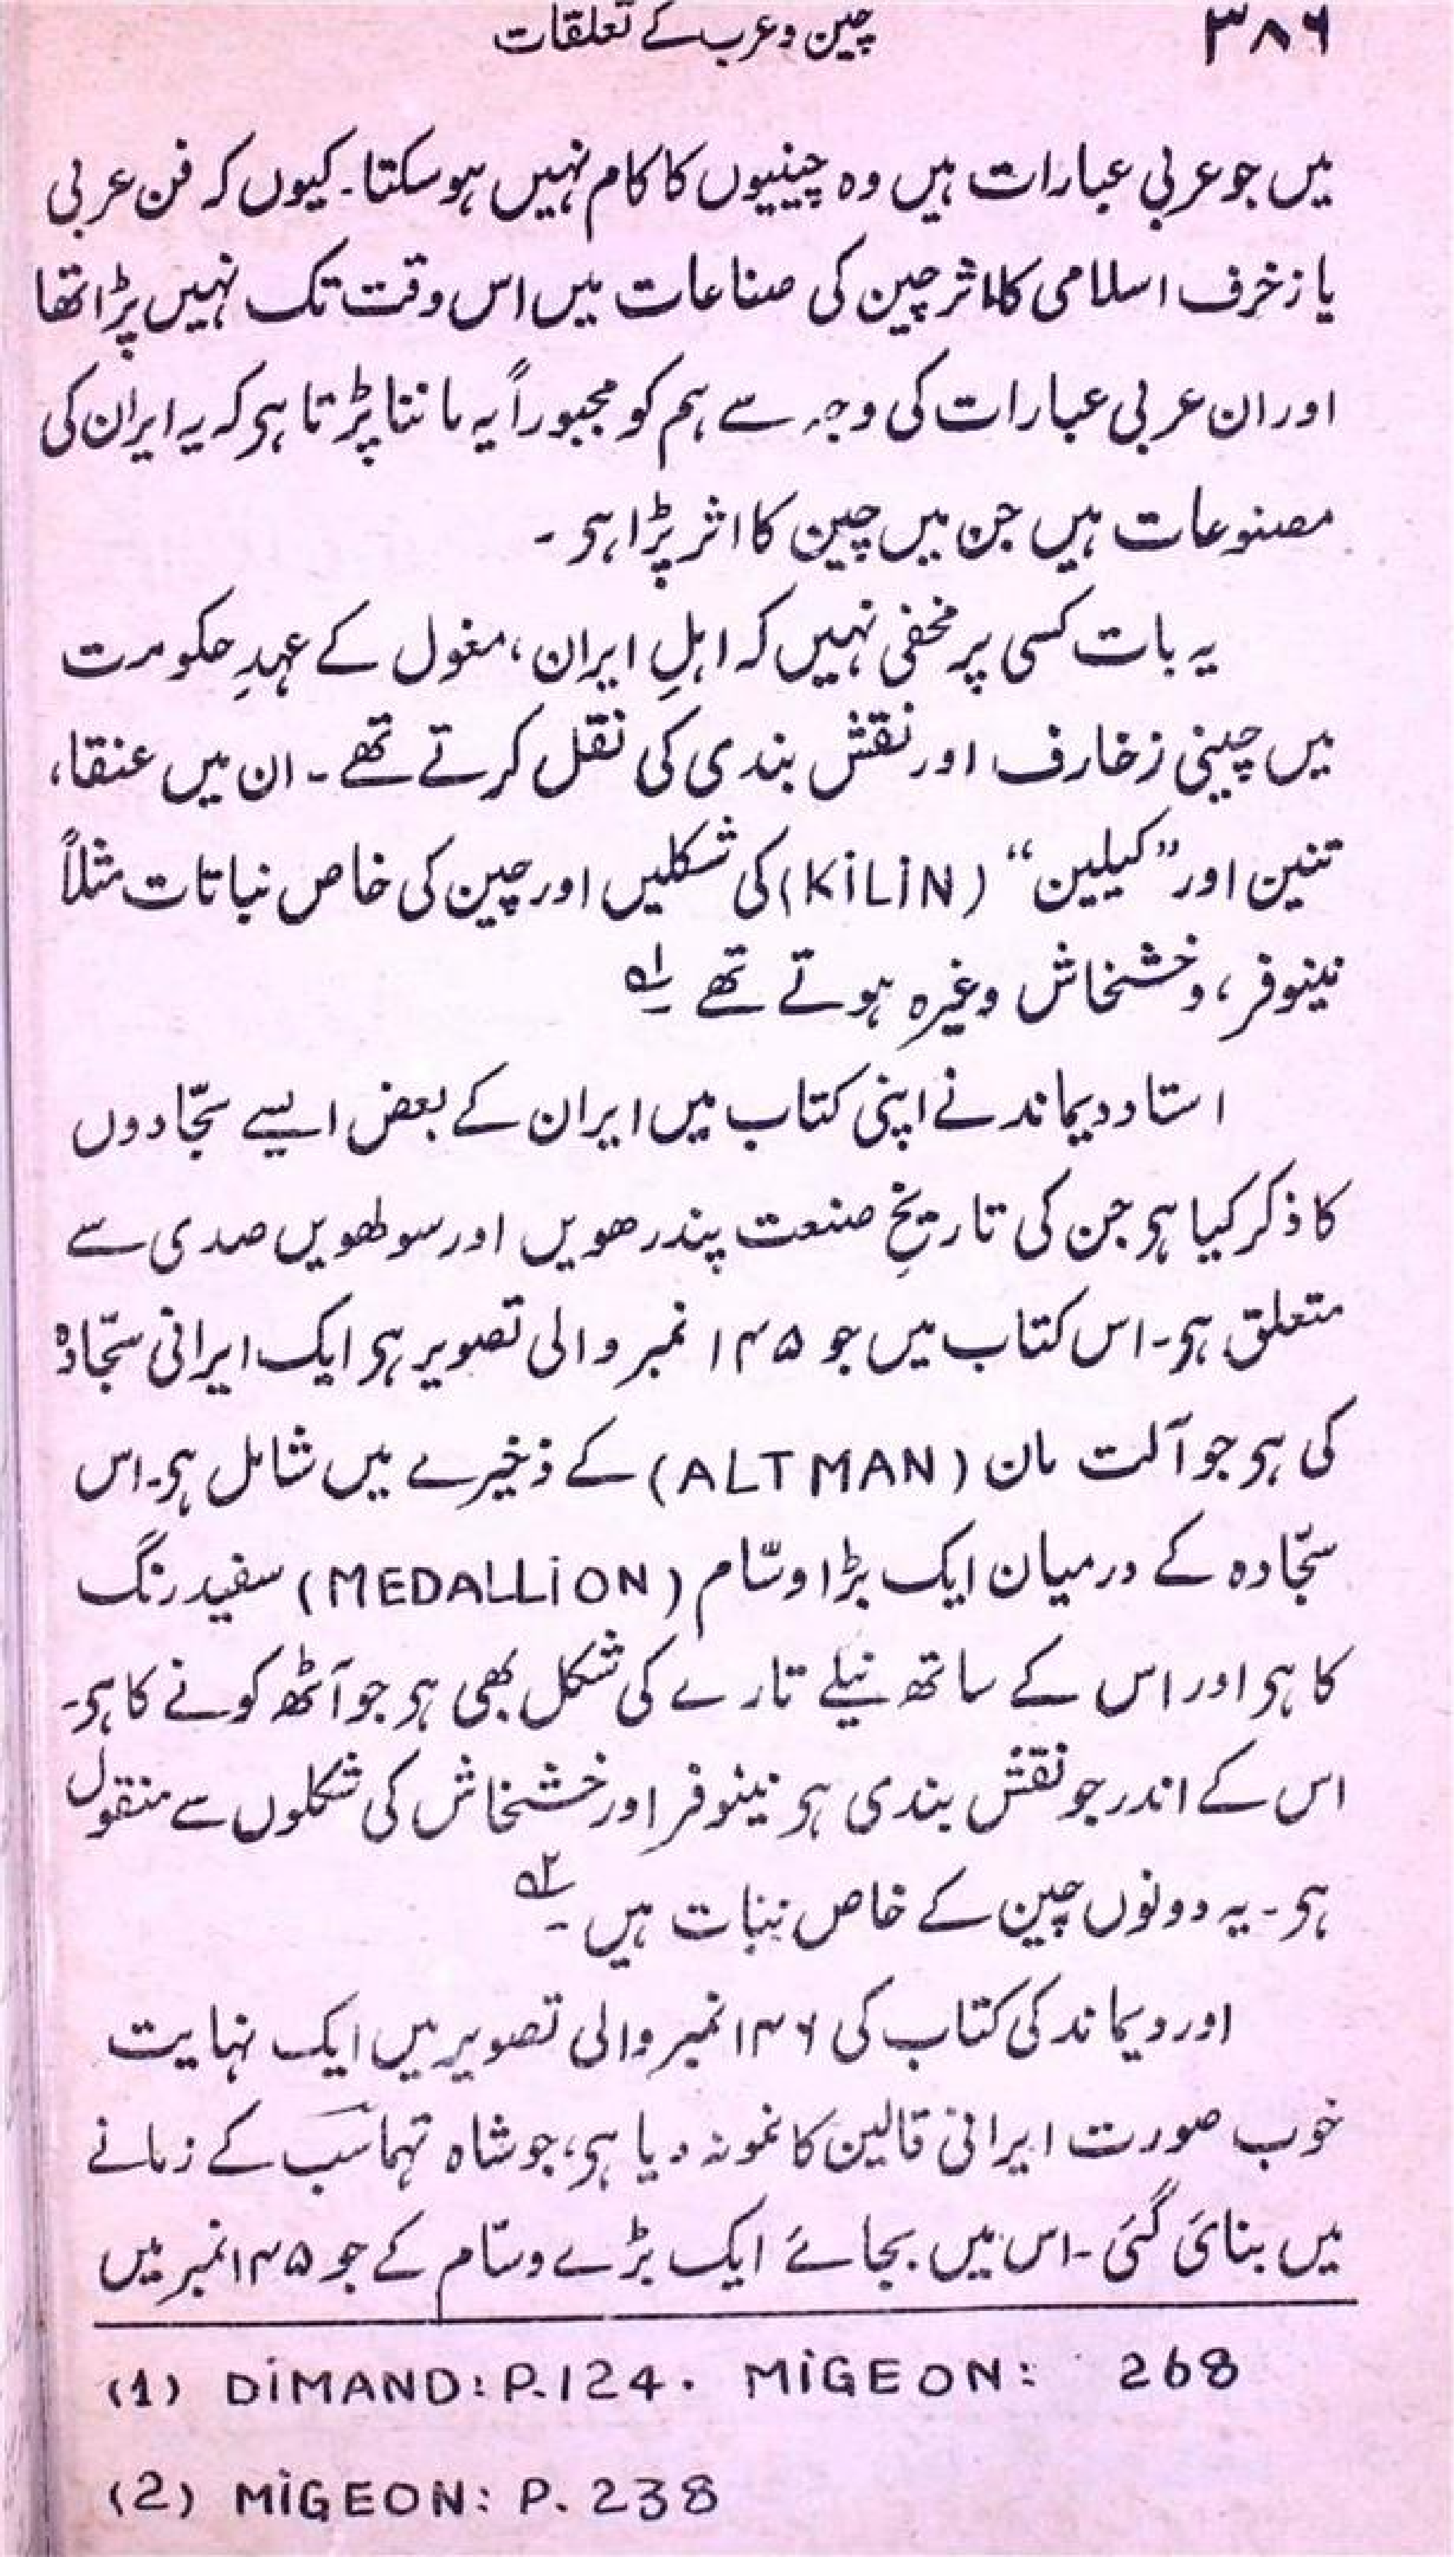 ۳۸۶ چین و عرب کے تعلقات
میں جو عربی عبارات ہیں وہ چینیوں کا کام نہیں ہوسکتا۔ کیوں کہ فن عربی
یا زخرف اسلامی کا اثر چین کی صناعات میں اس وقت تک نہیں پڑا تھا
اور ان عربی عبارات کی وجہ سے ہم کو مجبوراً یہ ماننا پڑتا ہی کہ یہ ایران کی
مصنوعات ہیں جن میں چین کا اثر پڑا ہی ۔
یہ بات کسی پر مخفی نہیں کہ اہلِ ایران، مغول کے عہدِ حکومت
میں چینی زخارف اور نقش بندی کی نقل کرتے تھے ۔ ان میں عنقا،
تنین اور ”کیلین“ (KiLiN) کی شکلیں اور چین کی خاص نباتات مثلاً
نینوفر، و خشخاش وغیرہ ہوتے تھے ۱؎
استاد دیماند نے اپنی کتاب میں ایران کے بعض ایسے سجّادوں
کا ذکر کیا ہی جن کی تاریخِ صنعت پندرھویں اور سولھویں صدی سے
متعلق ہی۔ اس کتاب میں جو ۱۴۵ نمبر والی تصویر ہی ایک ایرانی سجّادہ
کی ہی جو آلت مان (ALTMAN) کے ذخیرے میں شامل ہی۔ اس
سجّادہ کے درمیان ایک بڑا وسّام (MEDALLiON) سفید رنگ
کا ہی اور اس کے ساتھ نیلے تارے کی شکل بھی ہی جو آٹھ کونے کا ہی۔
اس کے اندر جو نقش بندی ہی نینوفر اور خشخاش کی شکلوں سے منقول
ہی ۔ یہ دونوں چین کے خاص نبات ہیں ۲؎
اور دیماند کی کتاب کی ۱۴۶ نمبر والی تصویر میں ایک نہایت
خوب صورت ایرانی قالین کا نمونہ دیا ہی، جو شاہ تہماسب کے زمانے
میں بنائی گئی ۔ اس میں بجائے ایک بڑے وسّام کے جو ۱۴۵ نمبر میں
(1) DiMAND: P.124. MiGEON: 268
(2) MiGEON: P. 238